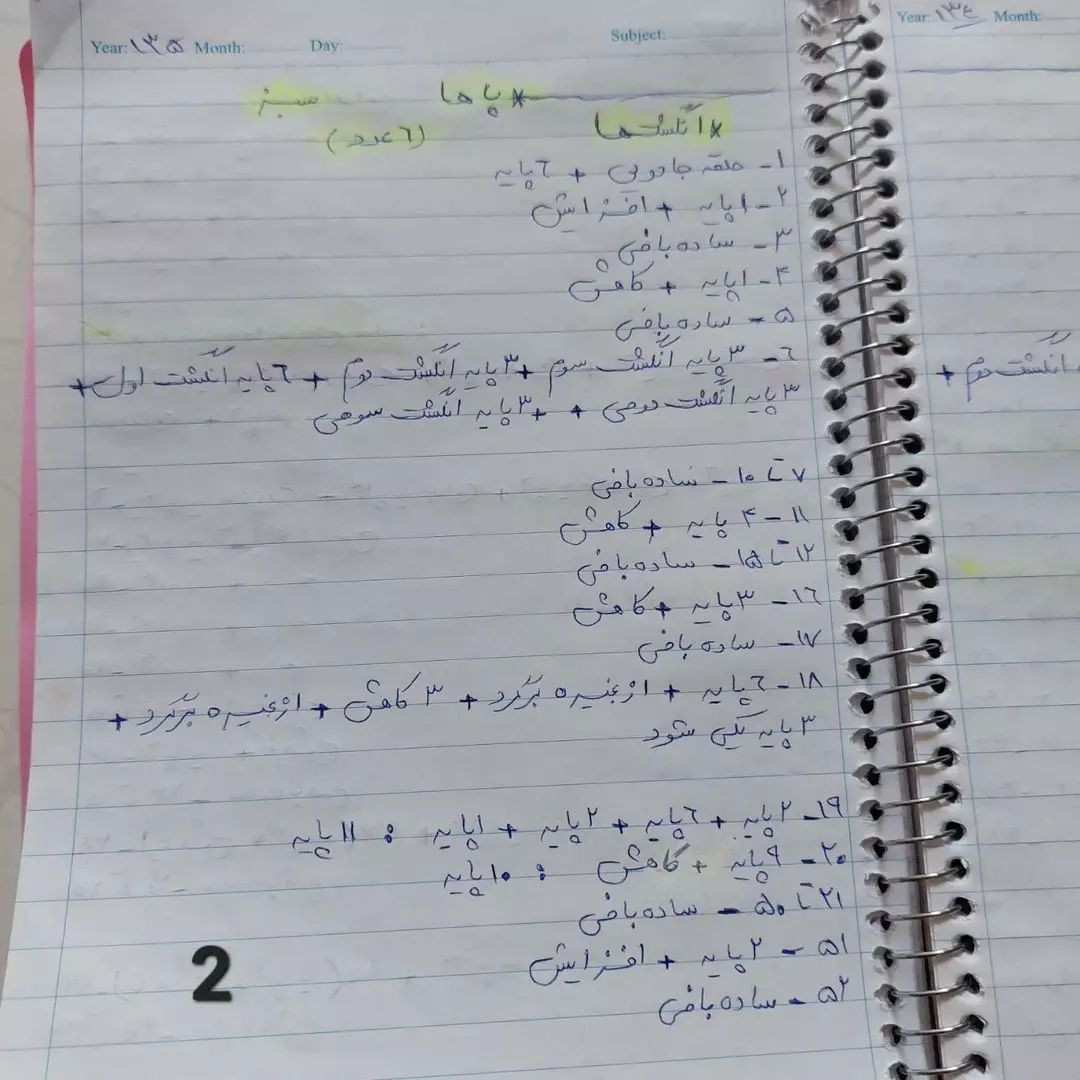 Year: ۱۳۵ Month: Day: Subject:
* پا ها سبز
* انگشت ها (۶ عدد)
۱- حلقه جادویی + ۶ پایه
۲- ۱ پایه + افزایش
۳- ساده بافی
۴- ۱ پایه + کاهش
۵- ساده بافی
۶- ۳ پایه انگشت سوم + ۳ پایه انگشت دوم + ۶ پایه انگشت اول +
۳ پایه انگشت دومی + + ۳ پایه انگشت سومی
۷ تا ۱۰- ساده بافی
۱۱- ۴ پایه + کاهش
۱۲ تا ۱۵- ساده بافی
۱۶- ۳ پایه + کاهش
۱۷- ساده بافی
۱۸- ۶ پایه + ۱ زنجیره برگرد + ۳ کاهش + ۱ زنجیره برگرد +
۳ پایه یکی شود
۱۹- ۲ پایه + ۶ پایه + ۲ پایه + ۱ پایه : ۱۱ پایه
۲۰- ۹ پایه + کاهش : ۱۰ پایه
۲۱ تا ۵۰- ساده بافی
۵۱- ۲ پایه + افزایش
۵۲- ساده بافی
2
Year: ۱۳۴ Month:
انگشت دوم +